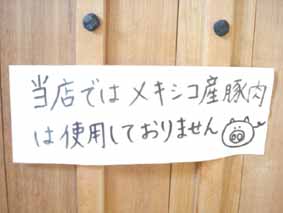 当店ではメキシコ産豚肉
は使用しておりません